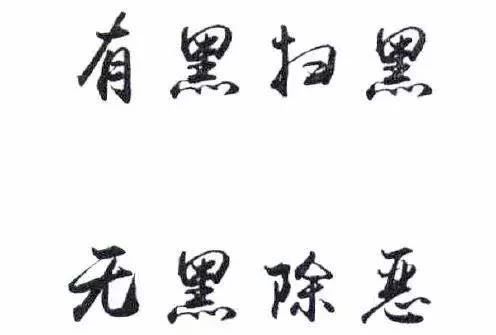 有黑扫黑
无黑除恶